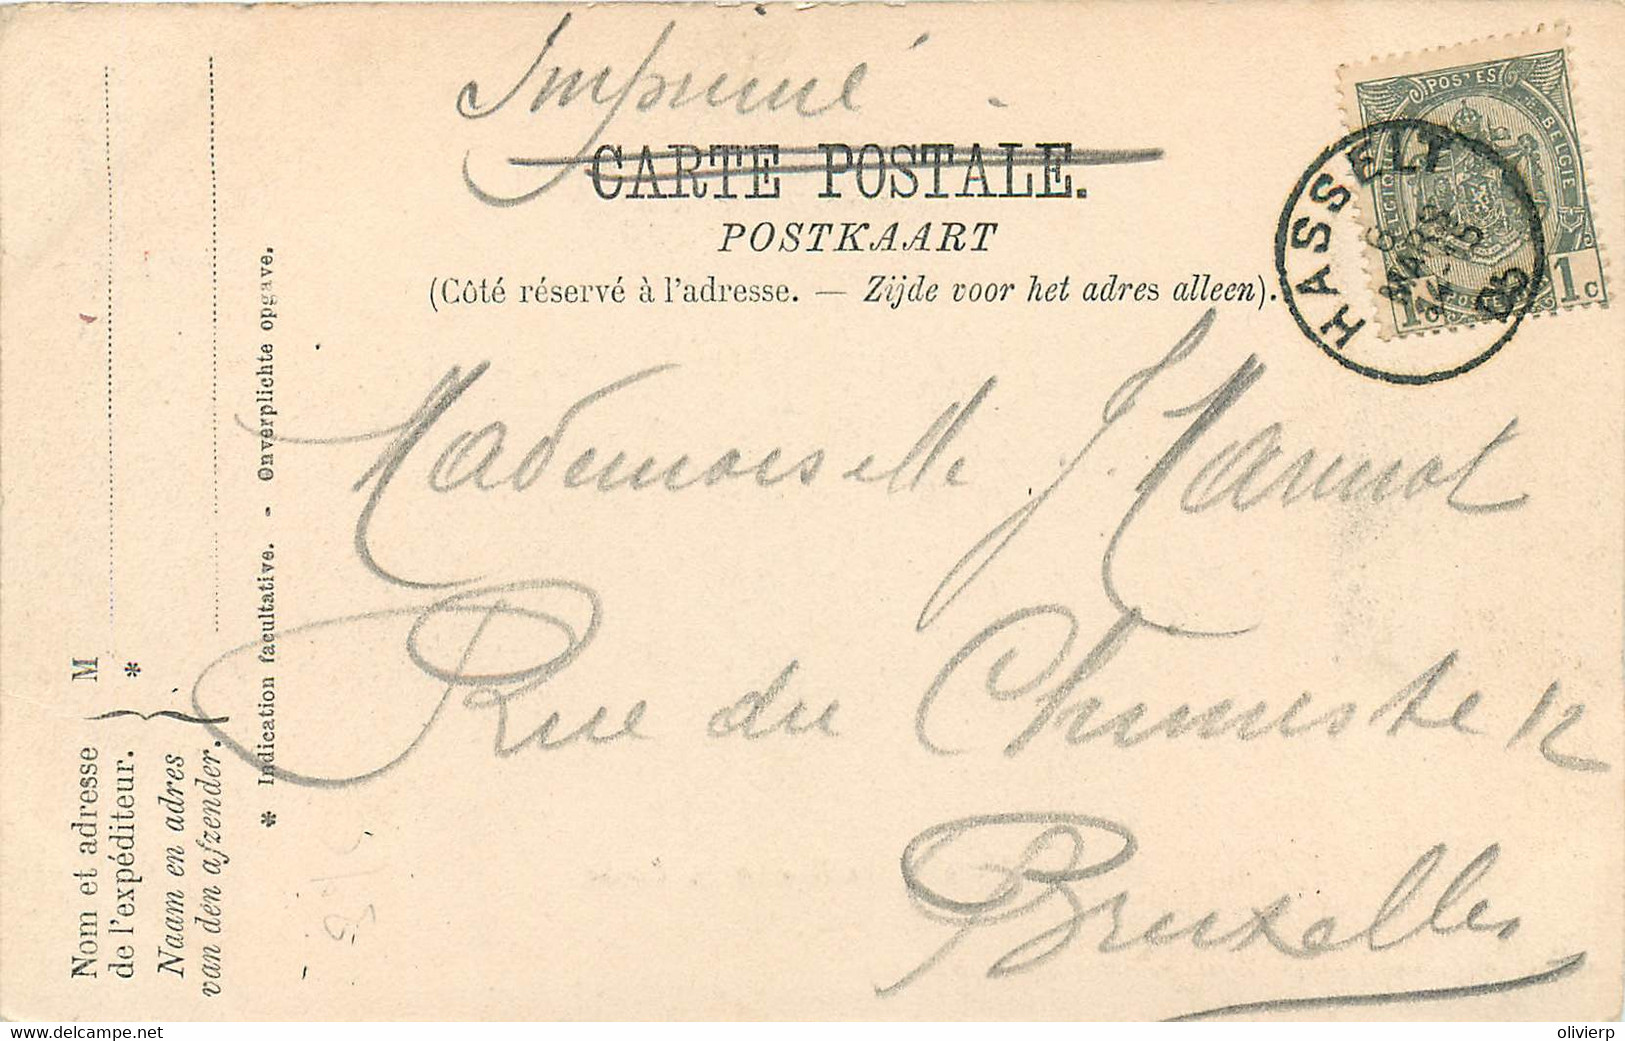 Imprimé
CARTE POSTALE.
POSTKAART
(Côté réservé à l'adresse. — Zijde voor het adres alleen).
POSTES
BELGIE
1c
HASSELT
6
MARS
Mademoiselle J. Marmot
Rue du Chimiste 12
Bruxelles
Nom et adresse
de l'expéditeur.
Naam en adres
van den afzender.
M
*
* Indication facultative. - Onverplichte opgave.
www.delcampe.net
olivierp